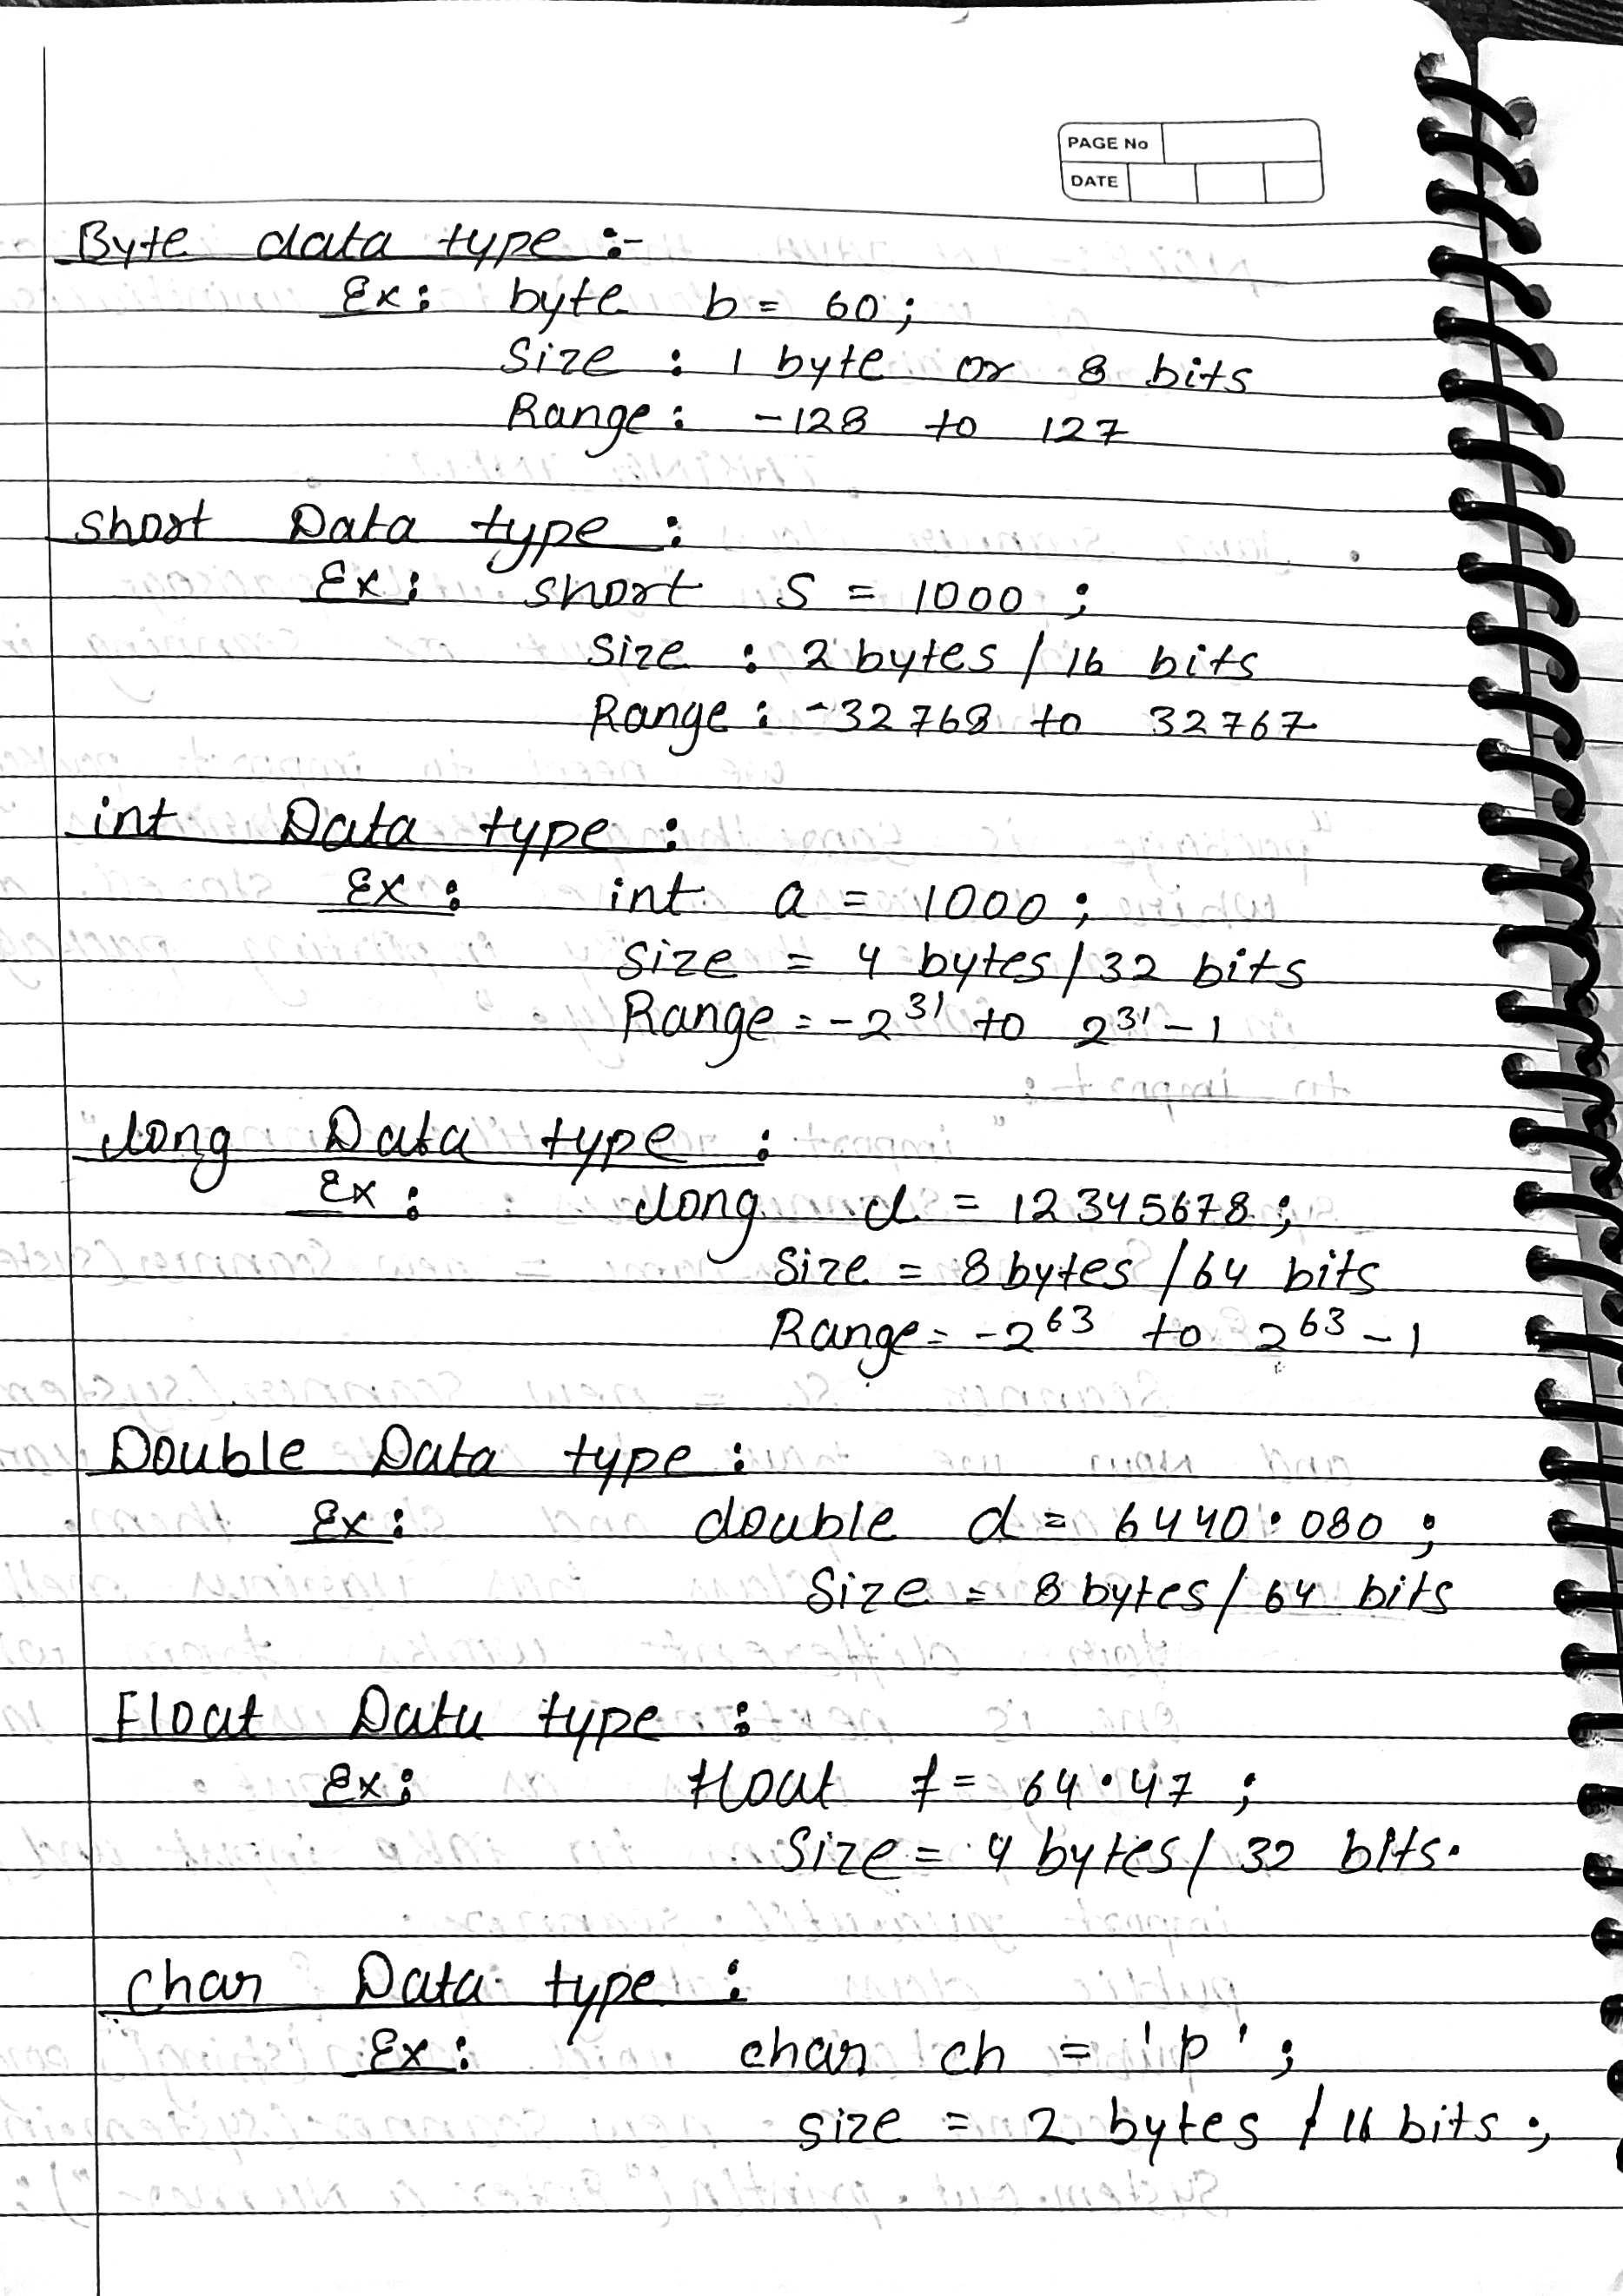 PAGE No
DATE
Byte data type :-
Ex: byte b = 60;
Size : 1 byte or 8 bits
Range: -128 to 127
short Data type :
Ex: short s = 1000 ;
Size : 2 bytes / 16 bits
Range : -32768 to 32767
int Data type :
Ex : int a = 1000 ;
Size = 4 bytes / 32 bits
Range = -2³¹ to 2³¹ - 1
long Data type :
Ex : long d = 12345678 ;
Size = 8 bytes / 64 bits
Range = -2⁶³ to 2⁶³ - 1
Double Data type :
Ex : double d = 6440.080 ;
Size = 8 bytes / 64 bits
Float Data type :
Ex : float f = 64.47 ;
Size = 4 bytes / 32 bits.
char Data type :
Ex : char ch = 'p' ;
size = 2 bytes / 16 bits ;